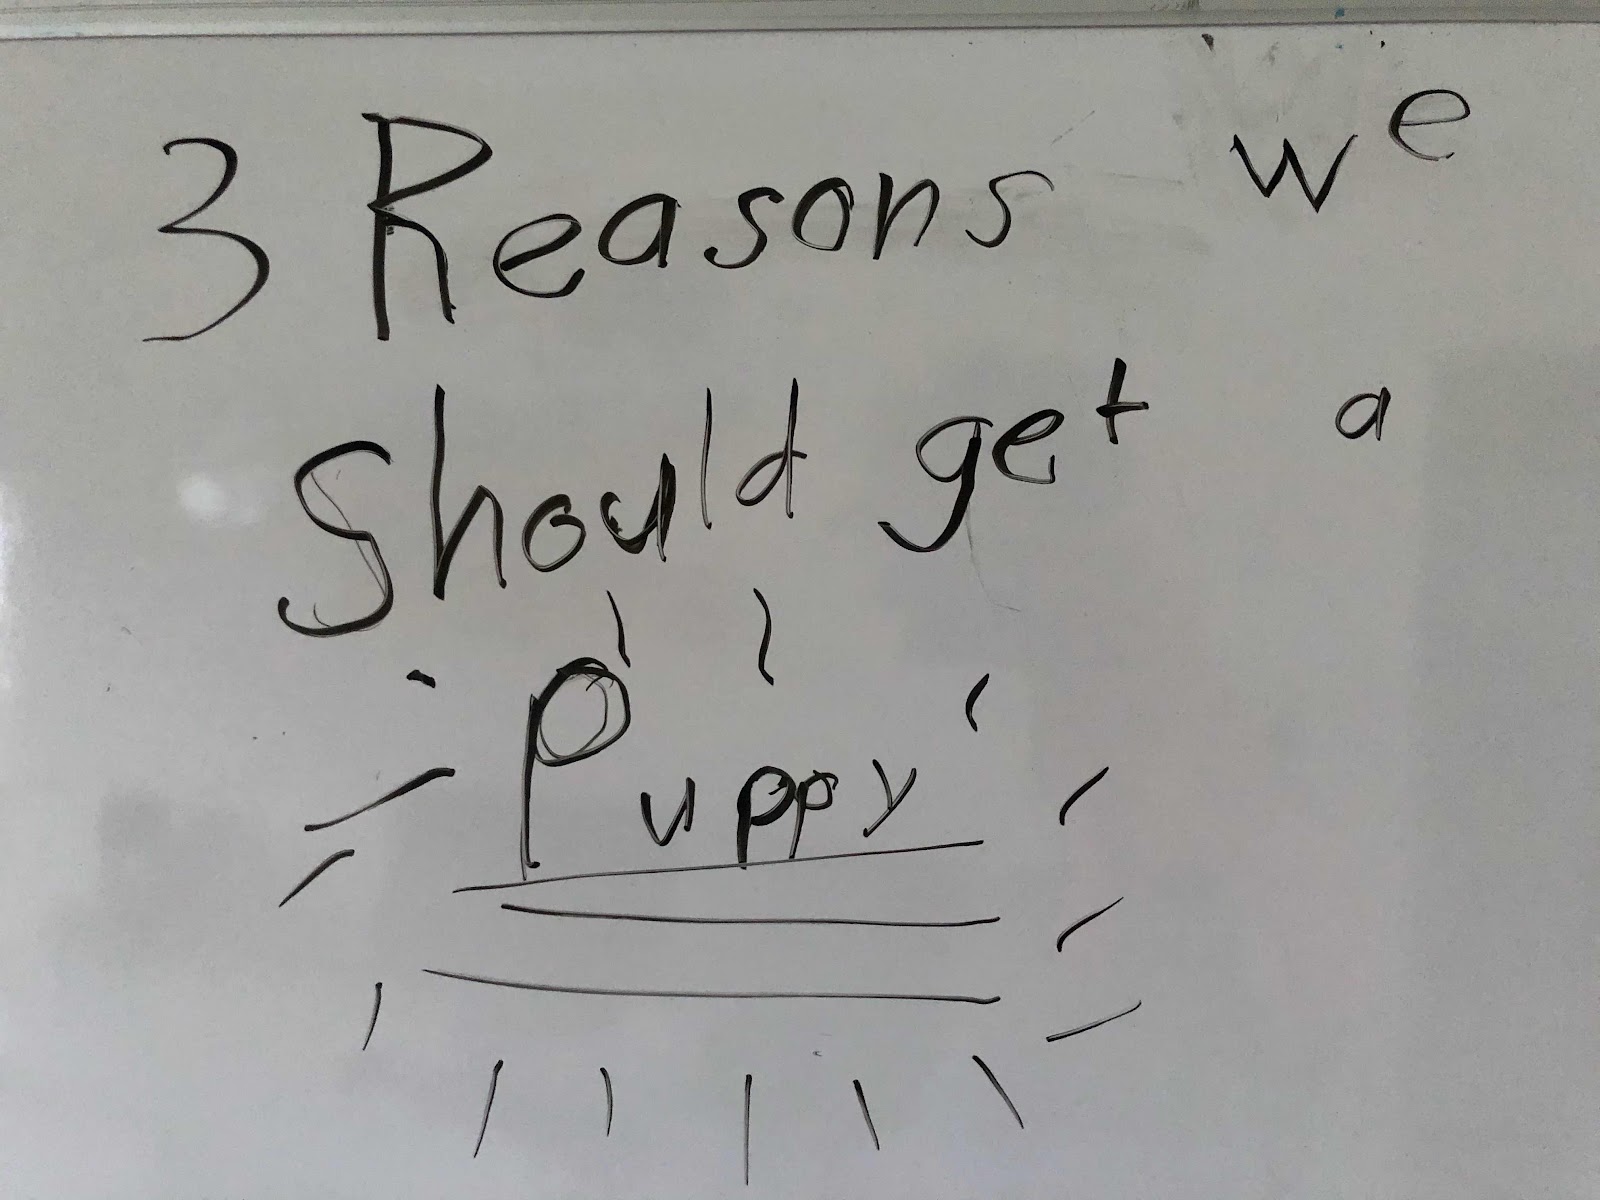 3 Reasons we
Should get a
Puppy